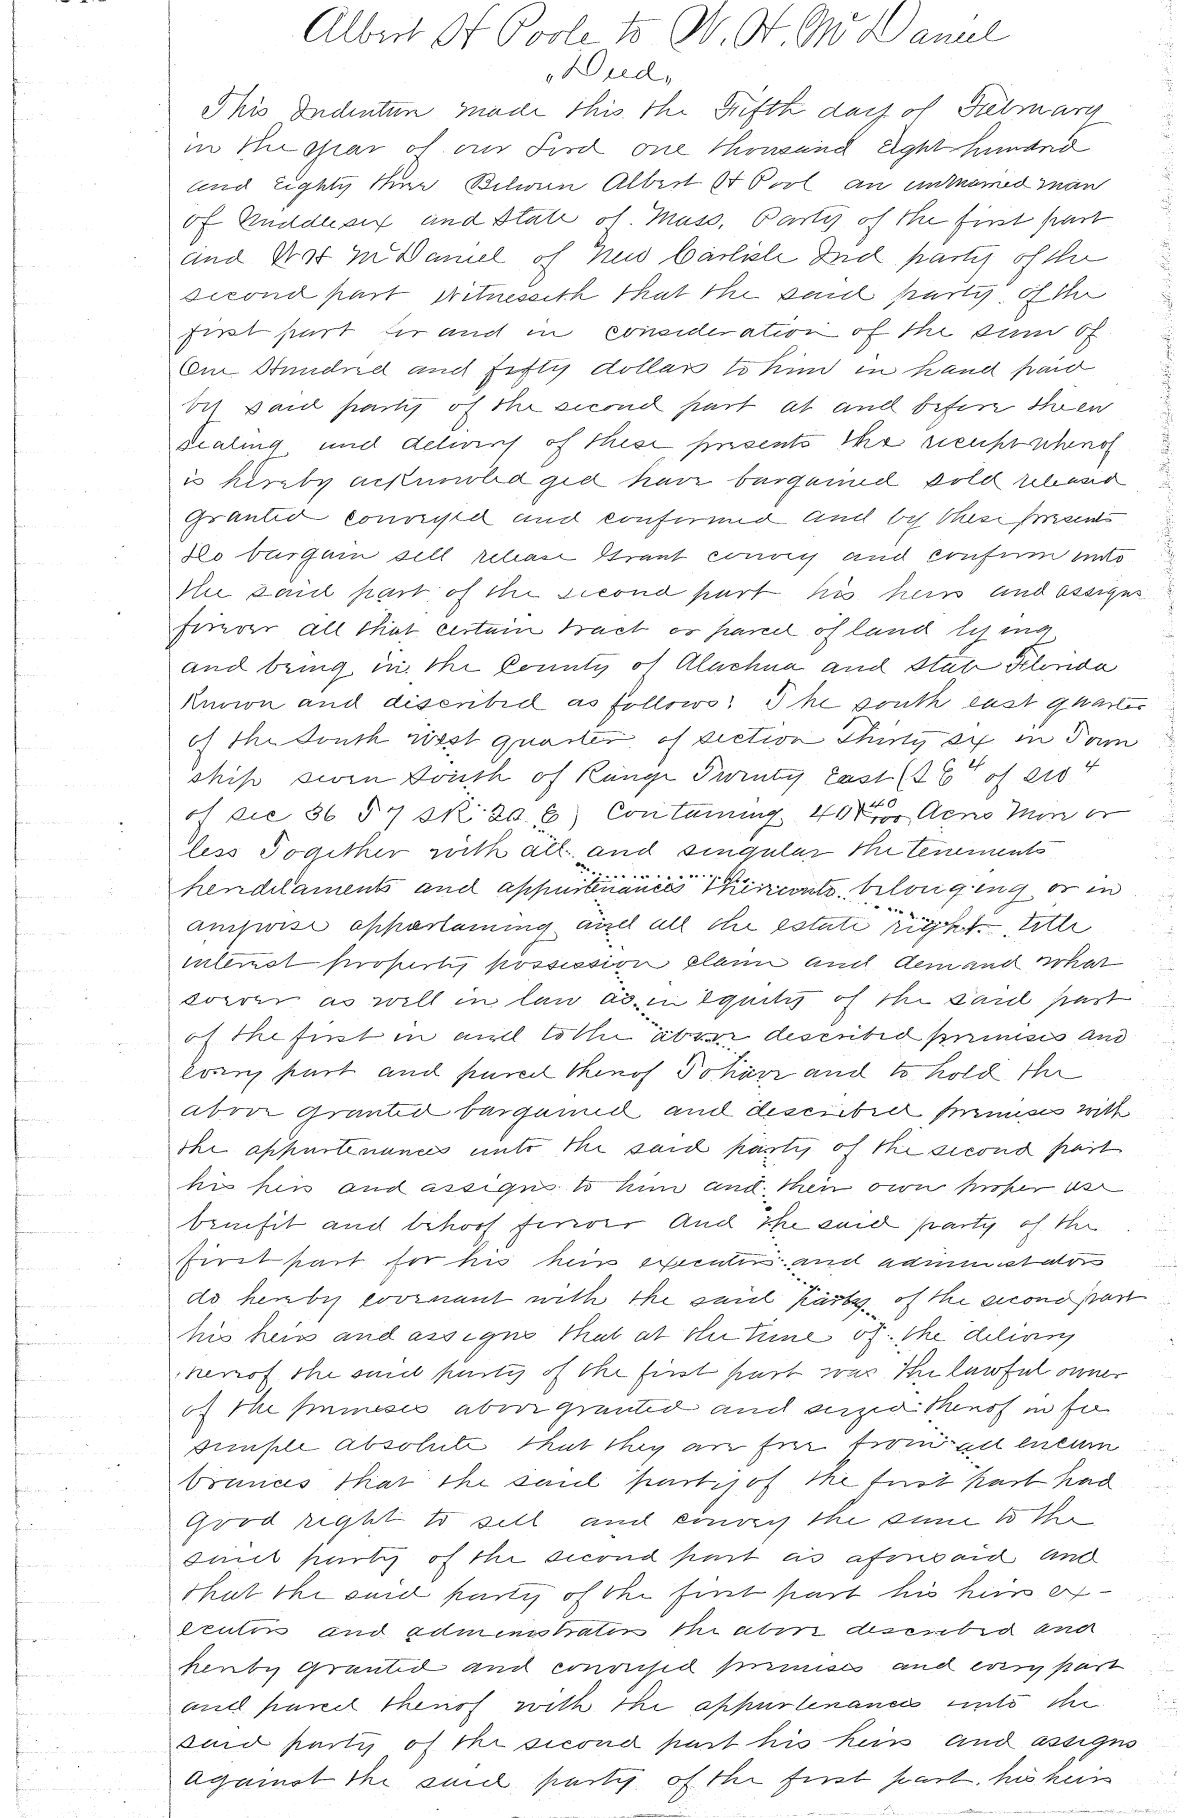 Albert H Poole to W. H. McDaniel
"Deed"
This Indenture made this the Fifth day of Febmary
in the year of our Lord one thousand Eight hundred
and Eighty three Between Albert H Pool an unmarried man
of Middlesex and State of. Mass, Party of the first part
and W H McDaniel of New Carlisle Ind party of the
second part Witnesseth that the said party of the
first part for and in consideration of the sum of
One Hundred and fifty dollars to him in hand paid
by said party of the second part at and before the en
sealing and delivery of these presents the receipt whereof
is hereby acknowledged have bargained sold released
Granted conveyed and confirmed and by these presents
do bargain sell release Grant convey and confirm unto
the said part of the second part his heirs and assigns
forever all that certain tract or parcel of land lying
and being in the County of Alachua and State Florida
Known and discribed as follows: The south east quarter
of the South west quarter of section Thirty six in Town
ship seven South of Range Twenty East (S E 4 of SW 4
of sec 36 T 7 S R 20 E) Containing 40 40/100 Acres More or
less Together with all and singular the tenements
herediaments and appurtenances thereunto belonging or in
anywise appertaining and all the estate right title
interest property possession claim and demand what
soever as well in law as in Equity of the said part
of the first in and to the above described premises and
every part and parcel thereof To have and to hold the
above granted bargained and described premises with
the appurtenances unto the said party of the second part
his heirs and assigns to him and their own proper use
benefit and behoof forever And the said party of the
first part for his heirs executors and administators
do hereby covenant with the said party of the second part
his heirs and assigns that at the time of the delivery
hereof the said party of the first part was the lawful owner
of the premises above granted and seized thereof in fee
simple absolute that they are free from all encum
brances that the said party of the first part had
good right to sell and convey the same to the
said party of the second part as aforesaid and
that the said party of the first part his heirs ex-
ecutors and administrators the above described and
hereby granted and conveyed premises and every part
and parcel thereof with the appurtenances unto the
said party of the second part his heirs and assigns
against the said party of the first part his heirs